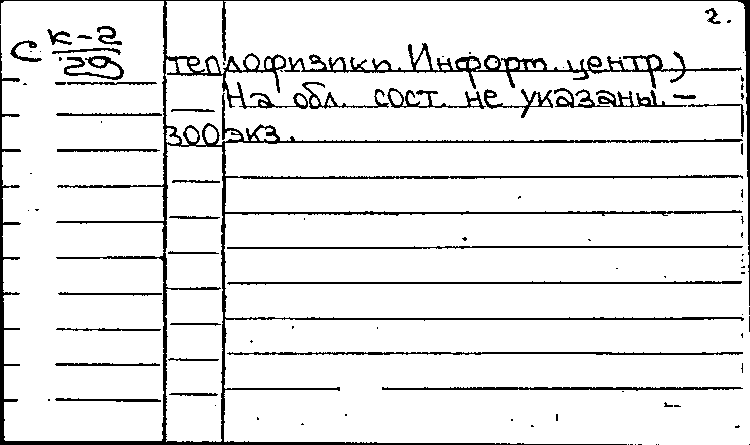 2.
С К-2
29
теплофизики. Информ. центр)
На обл. сост. не указаны. —
300 экз.